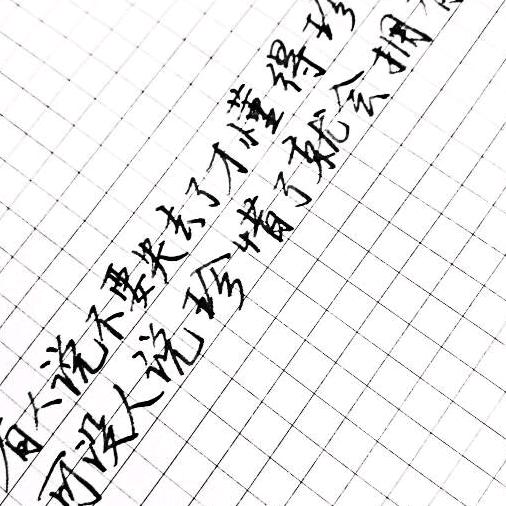 有人说不要失去了才懂得珍
可没人说珍惜了就会拥有